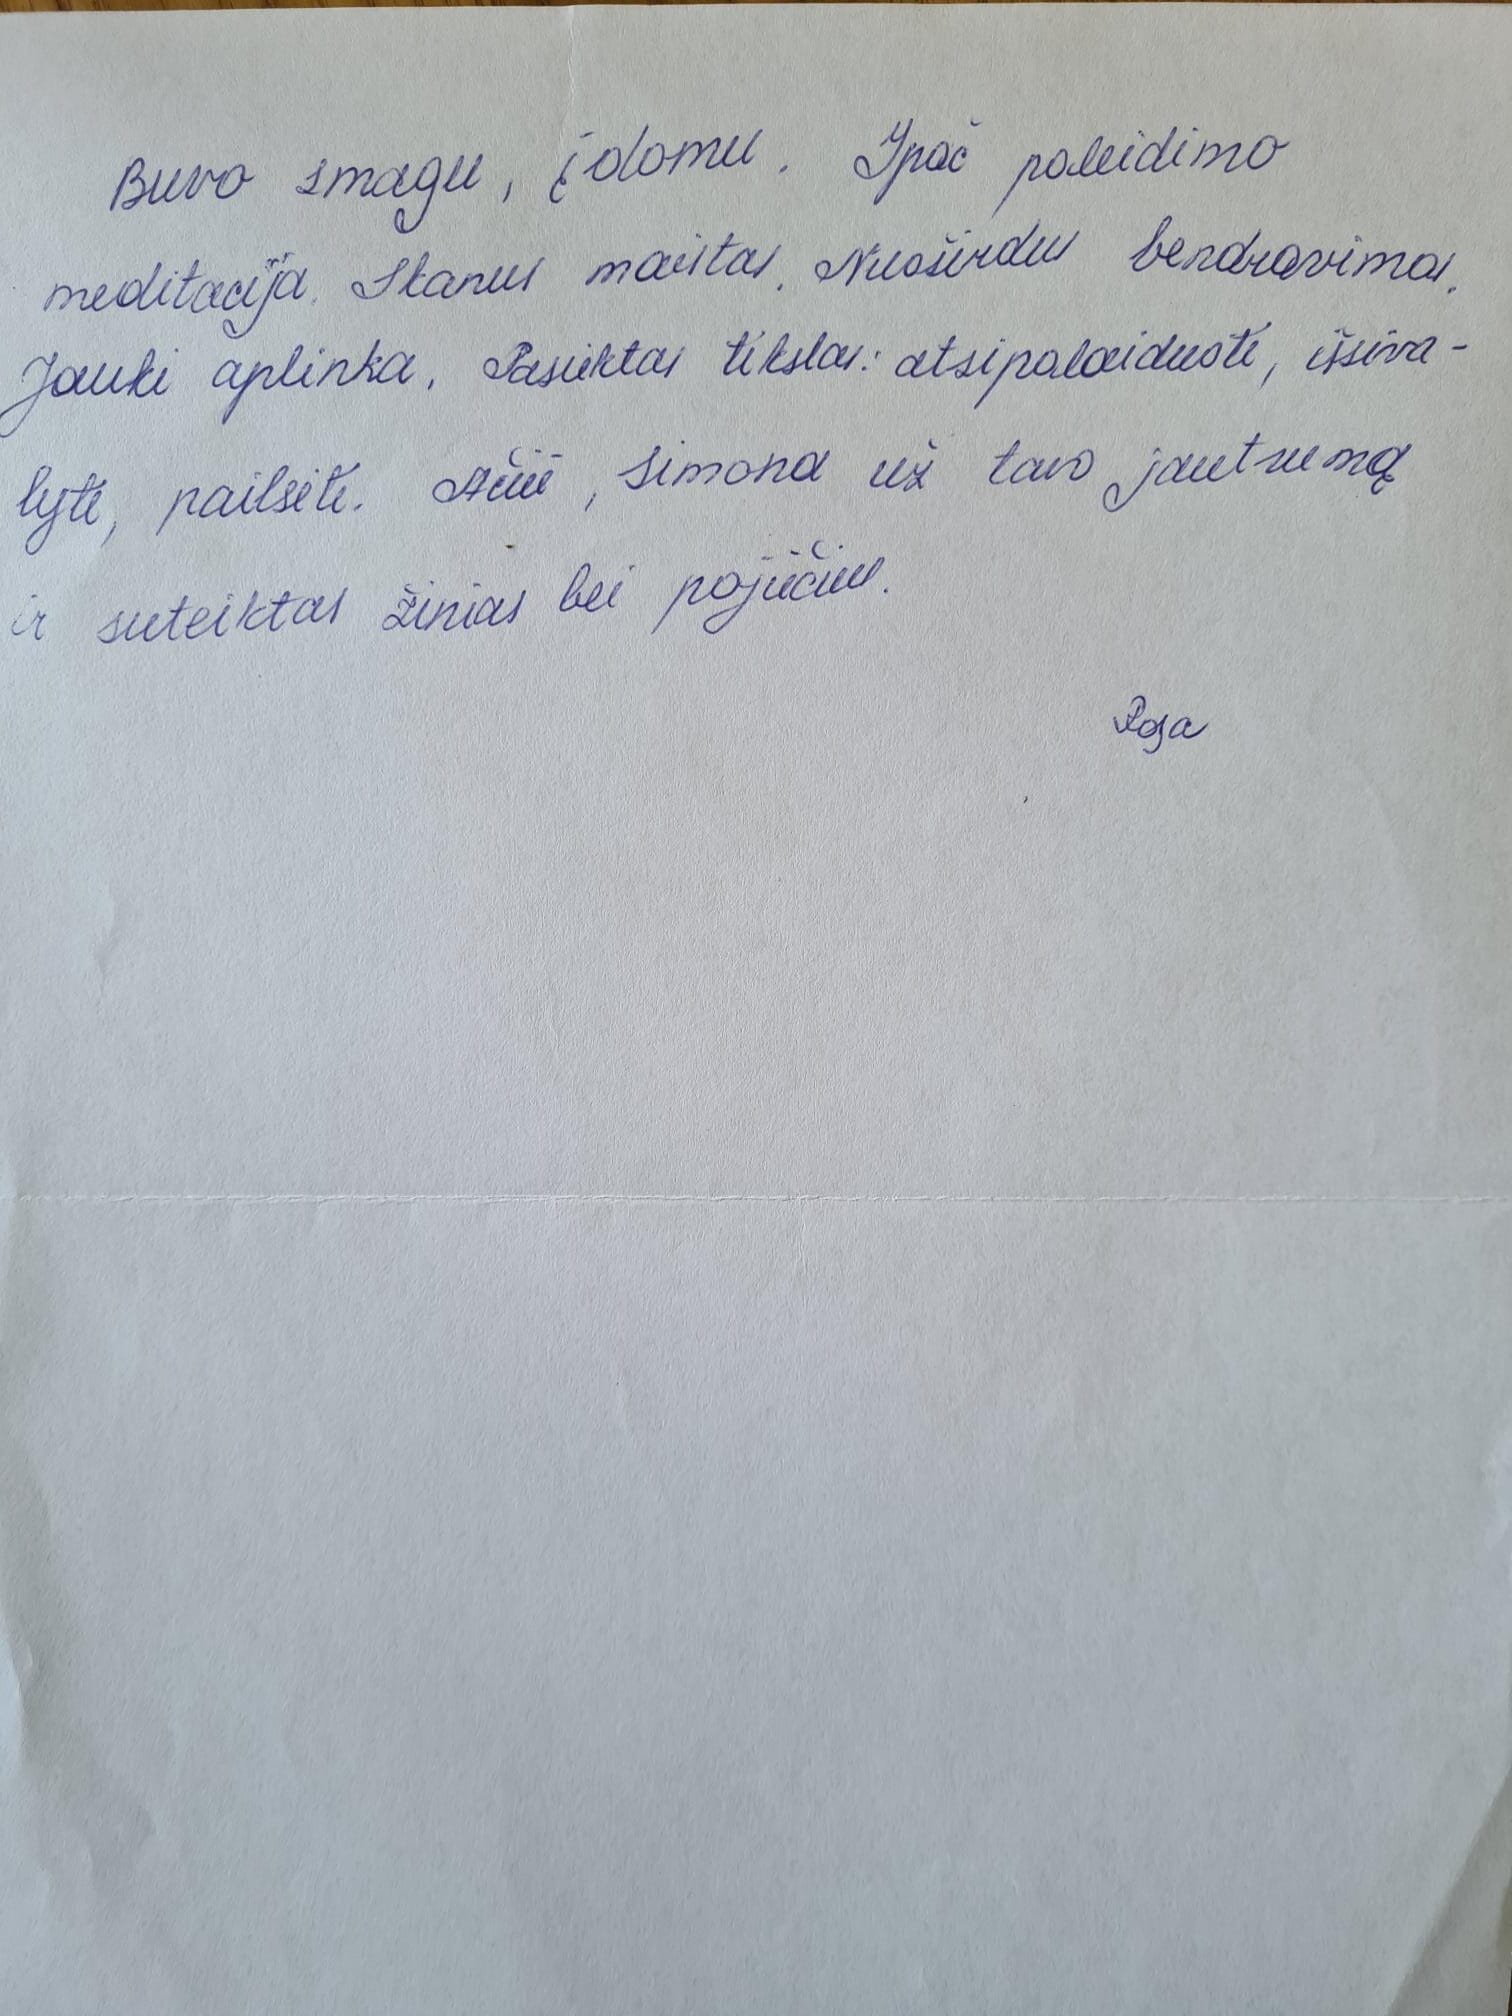 Buvo smagu, įdomu. Ypač paleidimo
meditacija. Skanus maistas. Nuoširdus bendravimas.
Jauki aplinka. Pasiektas tikslas: atsipalaiduoti, išsiva-
lyti, pailsėti. Ačiū, Simona už tavo jautrumą
ir suteiktas žinias bei pojūčius.
Roza